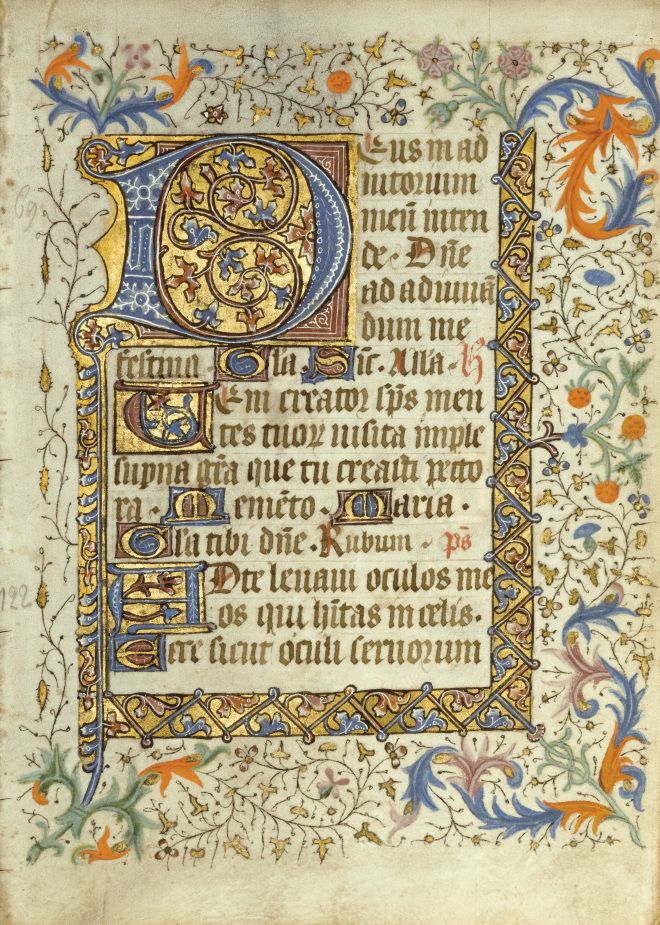 Deus in ad
iutorium
meū inten
de. Dn̄e
ad adiuuā
dum me
festina. Gl̄a. Sic̄. Alla. H̄
Uem creator sp̄s men
tes tuoꝝ uisita imple
sup̄na gr̄a que tu creasti pecto
ra. Memēto. Maria.
Gl̄a tibi dn̄e. Rubum. ps̄
AD te leuaui oculos me
os qui hītas in celis.
Ecce sicut oculi seruorum
122